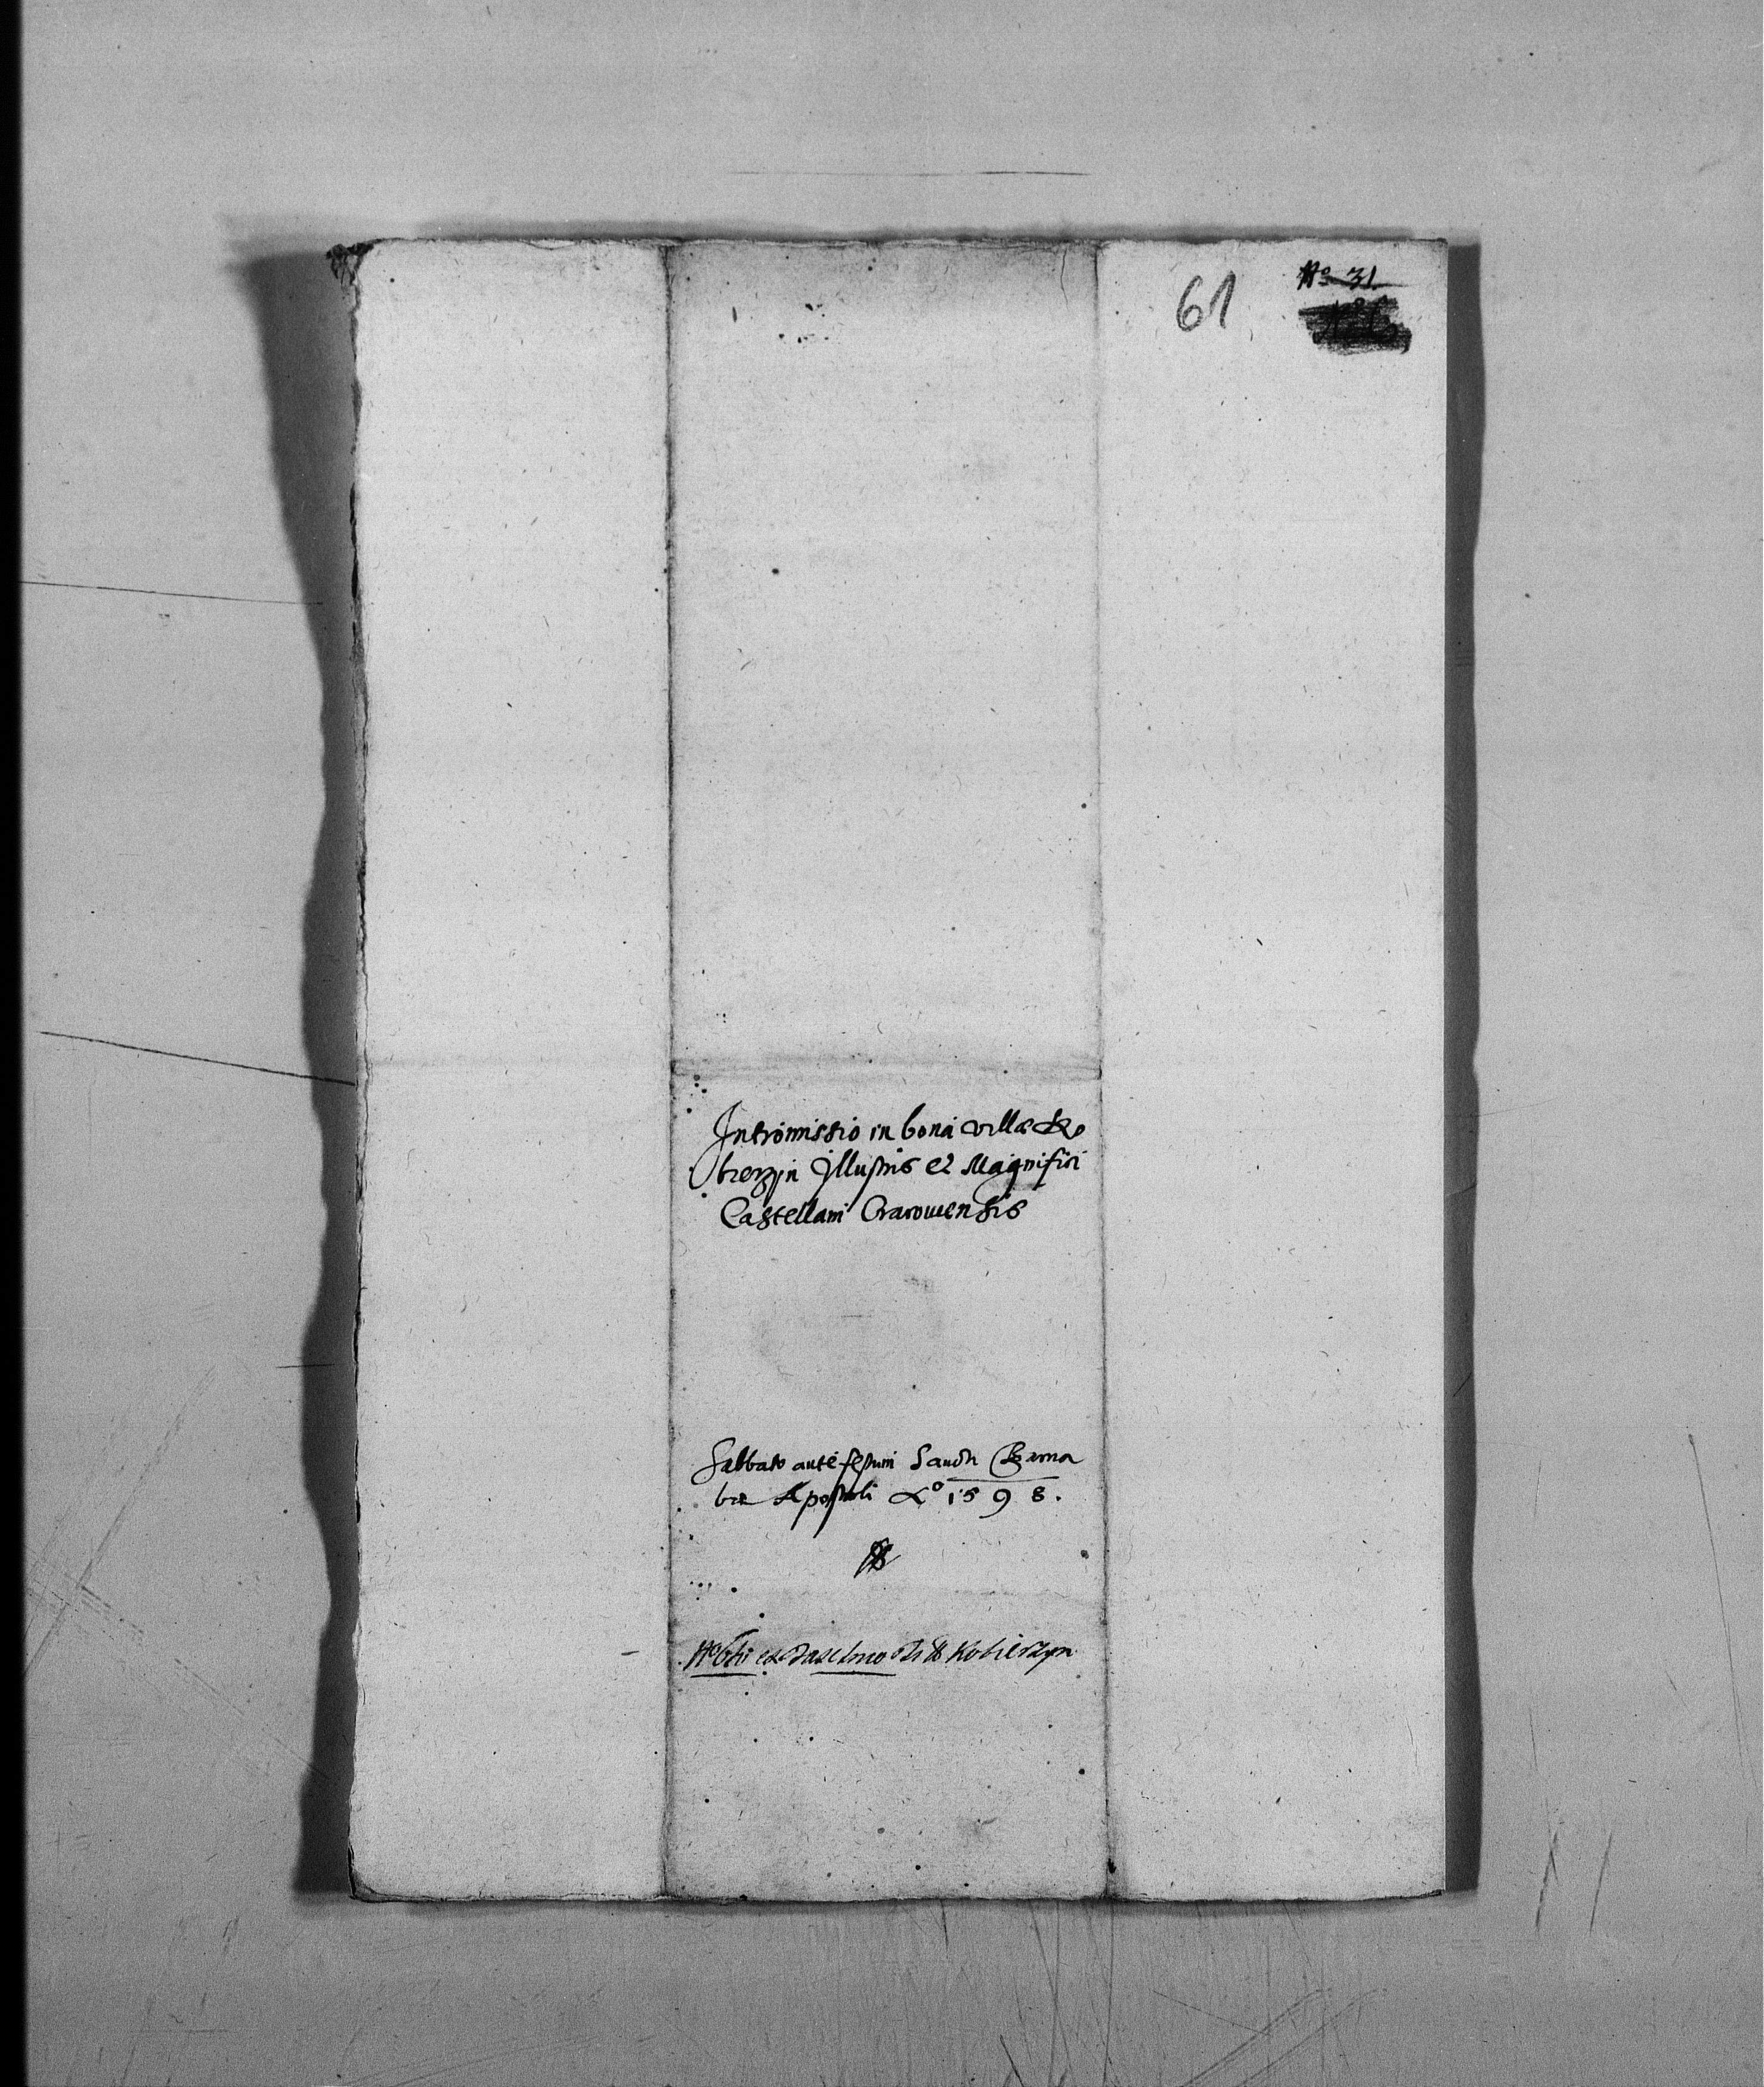 61
No 31
Intromissio in bona villæ Ko
bierzyn Illustris et Magnifici
Castellani Cracouiensis
Sabbato ante festum Sancti Barna
bæ Apostoli Ao 1598.
Kobierzyn